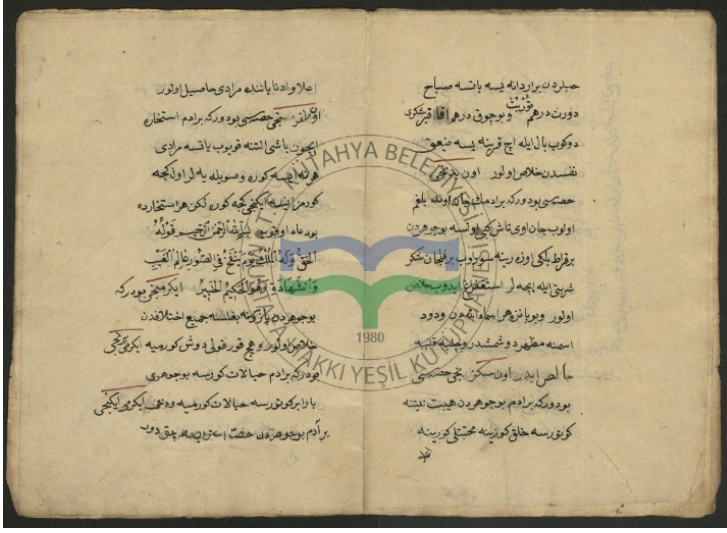 حبلردن برار دانه یسه یاتسه صباح
دورت درهم قورت وبوچوق درهم اقا قر شکری
دوکوب بال ایله اچ قرینه یسه ضعوق
نفسدن خلاص اولور اون یدنجی
حصه سی بودورکه برادمک جان اونده بلغم
اولوب جان اوی تاش کبی اولسه بوجوهردن
برقراط یلکی اوزرینه سوروب برفلجان شکر
شربتی ایله ایچه لر استفراغ ایدوب خلاص
اولور وبویانزهر اسماء الله دن ودود
اسمنه مظهر دوشمشدر وجلبه قلبه
خالص ایدر اون سکزنجی خصه سی
بودورکه برادم بوجوهردن هیبت نیتنه
کوتورسه خلق کوزینه محبتلی کورینه
اعلا وادنا یاننده مرادی حاصیل اولور
اون طقزنجی خصه سی بودورکه برادم استخاره
ایچون باشی التنه قویوب یاتسه مرادی
هرنه ایسه کوره وصویله یه لر اول کجه
کورمز ایسه ایکنجی کجه کوره لکن هر استخارده
بودعاء اوقویه بسم الله الرحمن الرحیم قوله
الحق وله الملك یوم ینفخ فی الصور عالم الغیب
والشهادة وهو الحکیم الخبیر ایکرمنجی بودرکه
بوجوهردن یازونه بغلسه جمیع اختلاقدن
خلاص اولور وهیچ قورقولی دوش کورمیه ایکرمی برنجی
بودرکه برادم خیالات کورسه بوجوهری
بارابر کوتورسه خیالات کورمیه ایکرمی ایکنجی
برآدم بوجوهردن
KÜTAHYA BELEDİYESİ
MUSTAFA HAKKI YEŞİL KÜTÜPHANESİ
1980